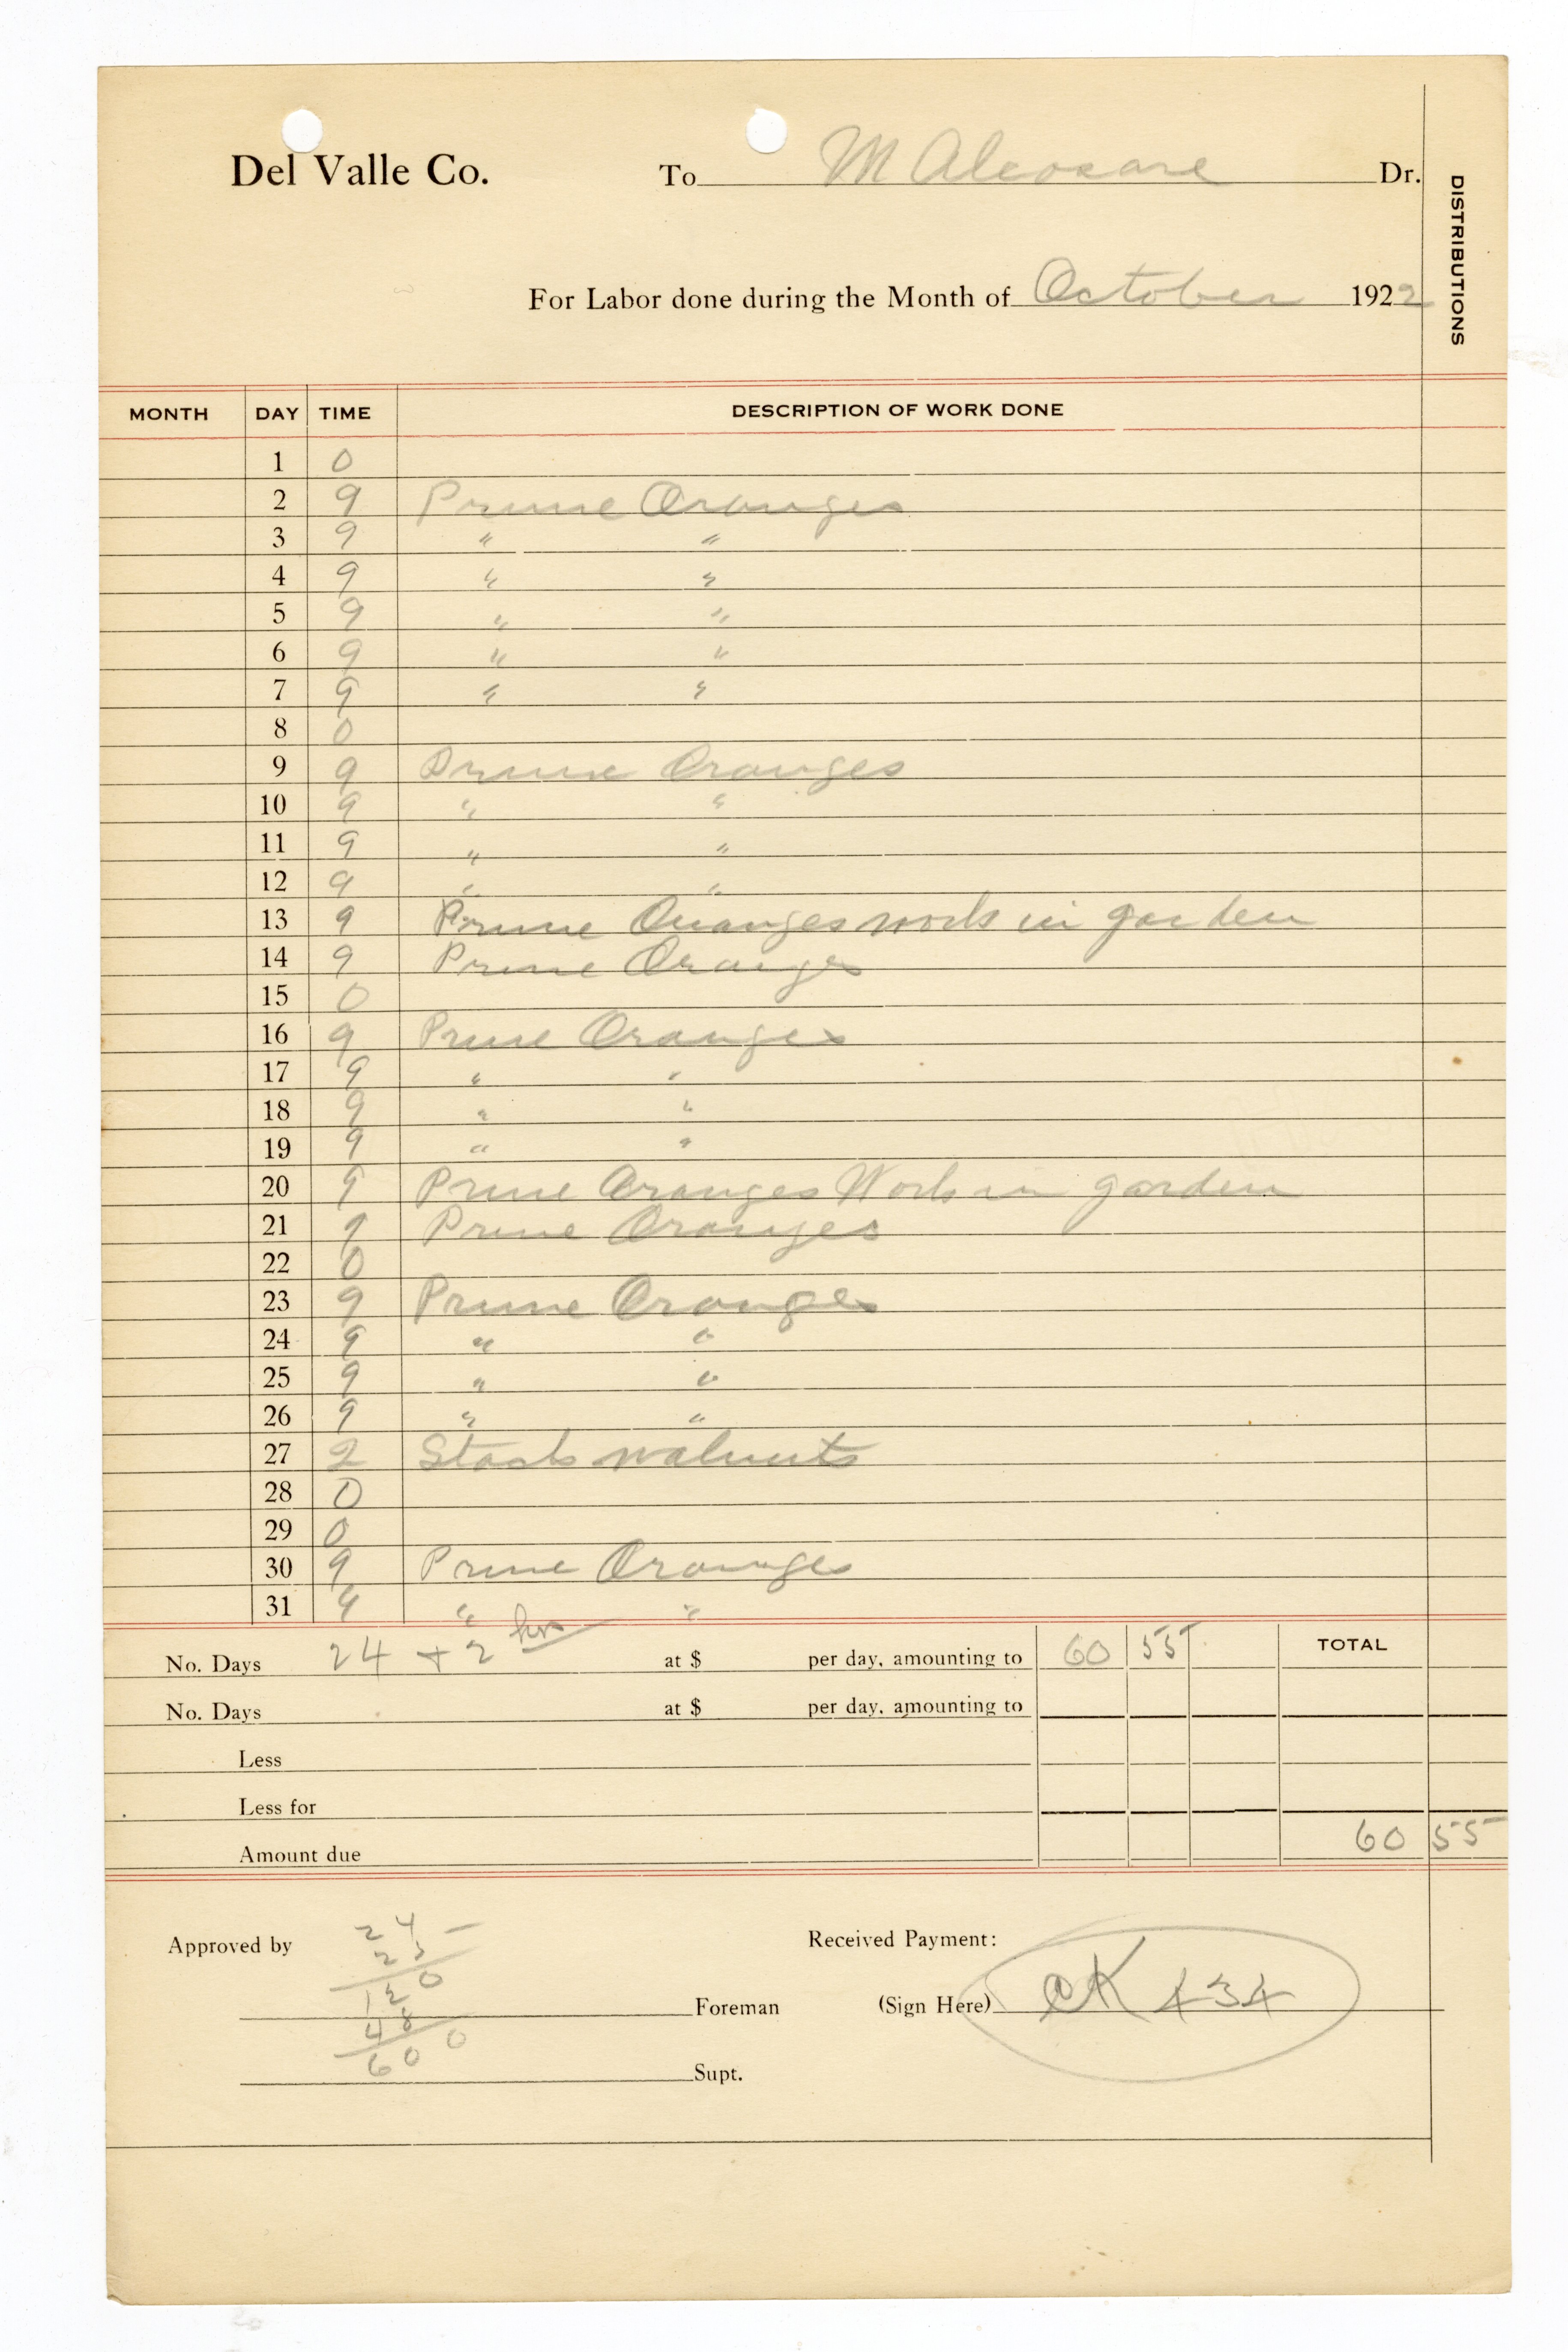 Del Valle Co. To M Alcosare Dr.
DISTRIBUTIONS
For Labor done during the Month of October 1922
MONTH DAY TIME DESCRIPTION OF WORK DONE
1 0
2 9 Prune Oranges
3 9 " "
4 9 " "
5 9 " "
6 9 " "
7 9 " "
8 0
9 9 Prune Oranges
10 9 " "
11 9 " "
12 9 " "
13 9 Prune Oranges work in garden
14 9 Prune Oranges
15 0
16 9 Prune Oranges
17 9 " "
18 9 " "
19 9 " "
20 9 Prune Oranges Work in garden
21 9 Prune Oranges
22 0
23 9 Prune Oranges
24 9 " "
25 9 " "
26 9 " "
27 2 Stack walnuts
28 0
29 0
30 9 Prune Oranges
31 9 " "
No. Days 24 + 2 hrs at $ per day, amounting to 60 55 TOTAL
No. Days at $ per day, amounting to
Less
Less for
Amount due 60 55
Approved by 24 Received Payment:
25
120
Foreman (Sign Here) CK 434
48
600 0
Supt.